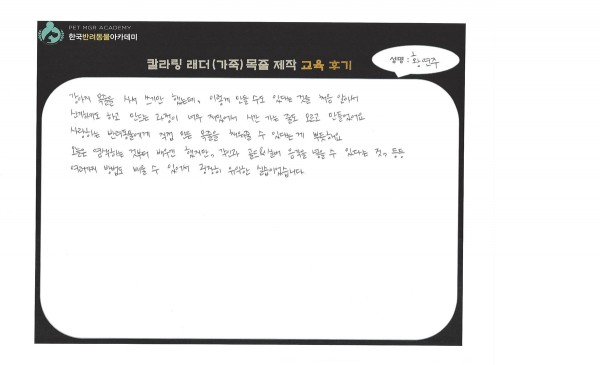 PET MGR ACADEMY
한국반려동물아카데미
칼라링 래더(가죽)목줄 제작 교육 후기
성명 : 황연주
강아지 목줄을 사서 쓰기만 했는데, 이렇게 만들 수도 있다는 것을 처음 알아서
신기하기도 하고 만드는 과정이 너무 재밌어서 시간 가는 줄도 모르고 만들었어요
사랑하는 반려동물에게 직접 만든 목줄을 채워줄 수 있다는게 뿌듯하네요
오늘은 염색하는 것부터 배우긴 했지만, 각인과 골드&실버 음각을 넣을 수 있다는 것, 등등
여러가지 방법도 배울 수 있어서 굉장히 유익한 실습이었습니다